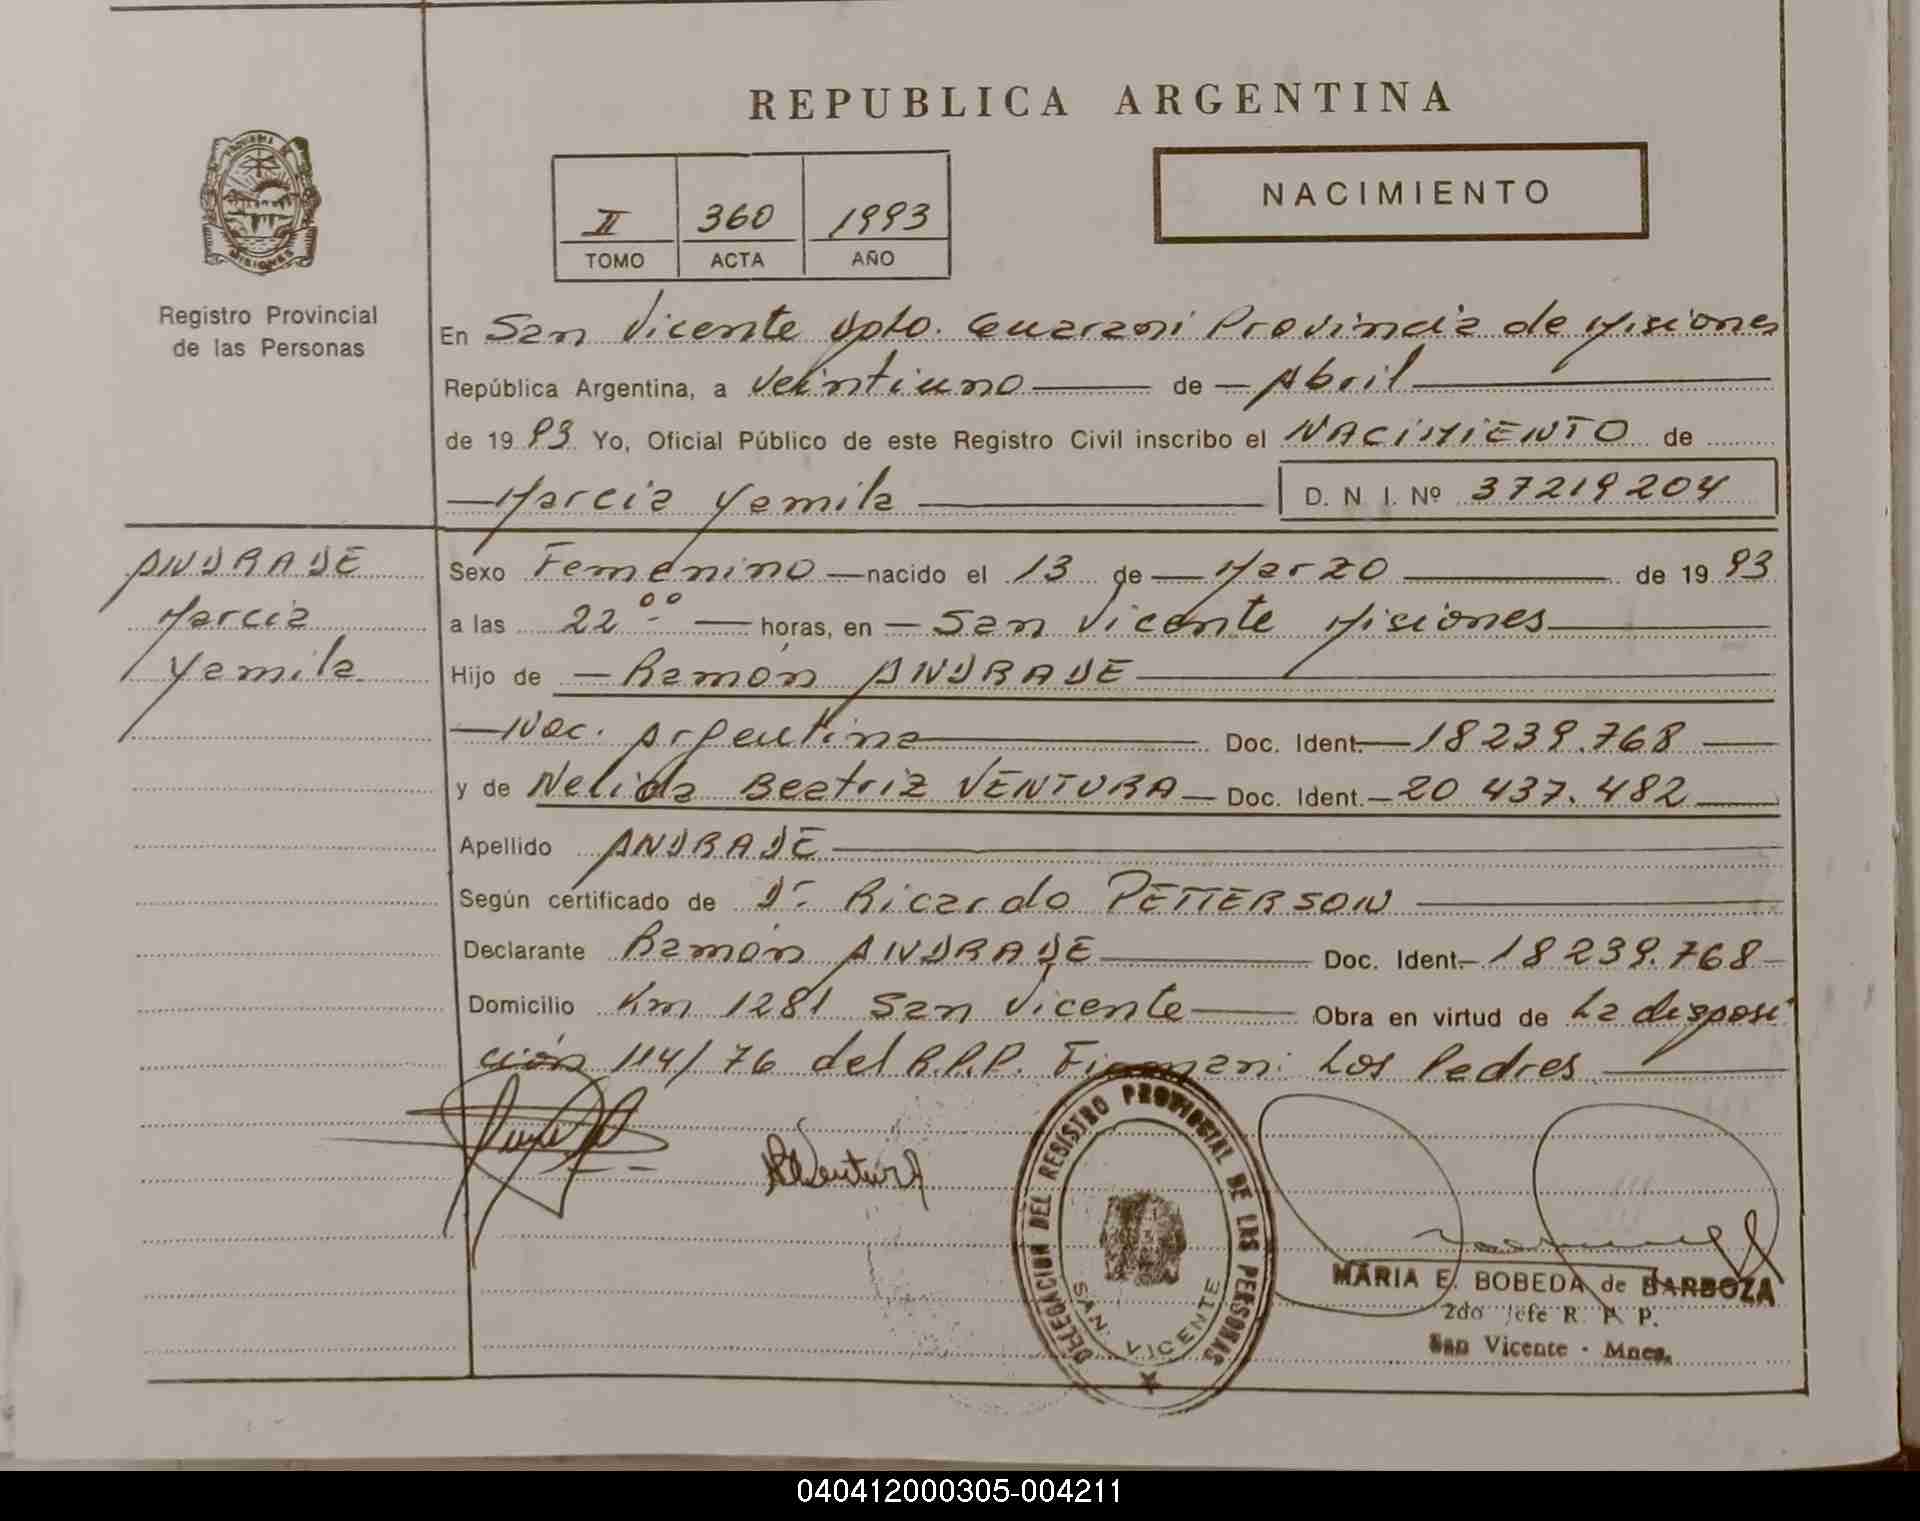 REPUBLICA ARGENTINA
PROVINCIA DE MISIONES
Registro Provincial
de las Personas
II 360 1993
TOMO ACTA AÑO
NACIMIENTO
En San Vicente Dpto. Guarani Provincia de Misiones
República Argentina, a veintiuno de Abril
de 1993 Yo, Oficial Público de este Registro Civil inscribo el NACIMIENTO de
Marcia Yamila D. N. I. Nº 37219204
ANDRADE
Marcia
Yamila
Sexo Femenino nacido el 13 de Marzo de 1993
a las 22 00 horas, en San Vicente Misiones
Hijo de Ramón ANDRADE
Nac. Argentina Doc. Ident. 18239.768
y de Nelida Beatriz VENTURA Doc. Ident. 20 437.482
Apellido ANDRADE
Según certificado de Dr. Ricardo PETTERSON
Declarante Ramón ANDRADE Doc. Ident. 18239.768
Domicilio Km 1281 San Vicente Obra en virtud de La disposi
ción 114/76 del R.P.P. Firman: Los Padres
Ventura
DELEGACION DEL REGISTRO PROVINCIAL DE LAS PERSONAS
SAN VICENTE
MARIA E. BOBEDA de BARBOZA
2do Jefe R. P. P.
San Vicente - Mnes.
040412000305-004211